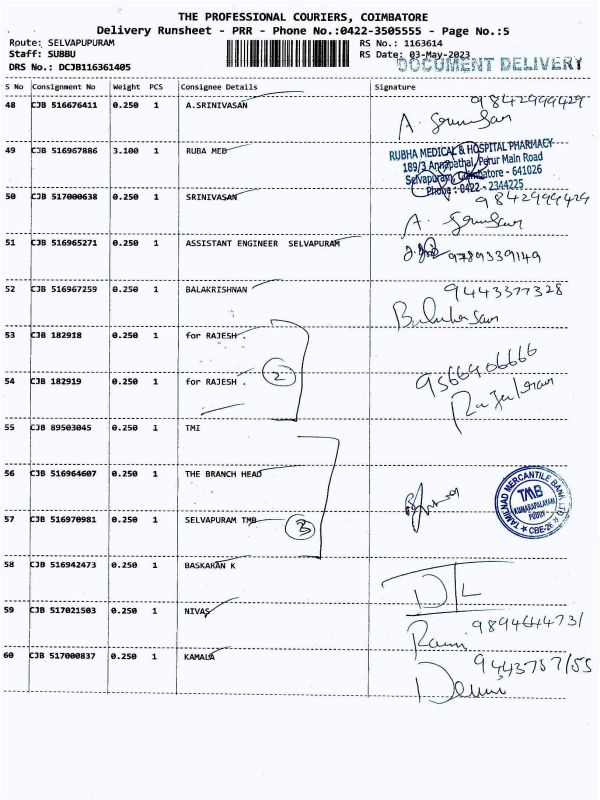 THE PROFESSIONAL COURIERS, COIMBATORE
Delivery Runsheet - PRR - Phone No.:0422-3505555 - Page No.:5
Route: SELVAPUPURAM
RS No.: 1163614
Staff: SUBBU
RS Date: 03-May-2023
DRS No.: DCJB116361405
DOCUMENT DELIVERY
S No Consignment No Weight PCS Consignee Details Signature
48 CJB 516676411 0.250 1 A.SRINIVASAN 9842999429
49 CJB 516967886 3.100 1 RUBA MED
RUBHA MEDICAL & HOSPITAL PHARMACY
189/3 Annapathal, Perur Main Road
Selvapuram, Coimbatore - 641026
Phone : 0422 - 2344225
50 CJB 517000638 0.250 1 SRINIVASAN 9842999429
51 CJB 516965271 0.250 1 ASSISTANT ENGINEER SELVAPURAM 9789339149
52 CJB 516967259 0.250 1 BALAKRISHNAN 9443377328
53 CJB 182918 0.250 1 for RAJESH .
2
54 CJB 182919 0.250 1 for RAJESH . 9566406666
55 CJB 89503045 0.250 1 TMI
56 CJB 516964607 0.250 1 THE BRANCH HEAD
TAMILNAD MERCANTILE BANK LTD
TMB
KUMARAPALAYAM
CBE-26
57 CJB 516970981 0.250 1 SELVAPURAM TMB 3
58 CJB 516942473 0.250 1 BASKARAN K D/L
59 CJB 517021503 0.250 1 NIVAS Rani 9894644731
60 CJB 517000837 0.250 1 KAMALA 9443757155